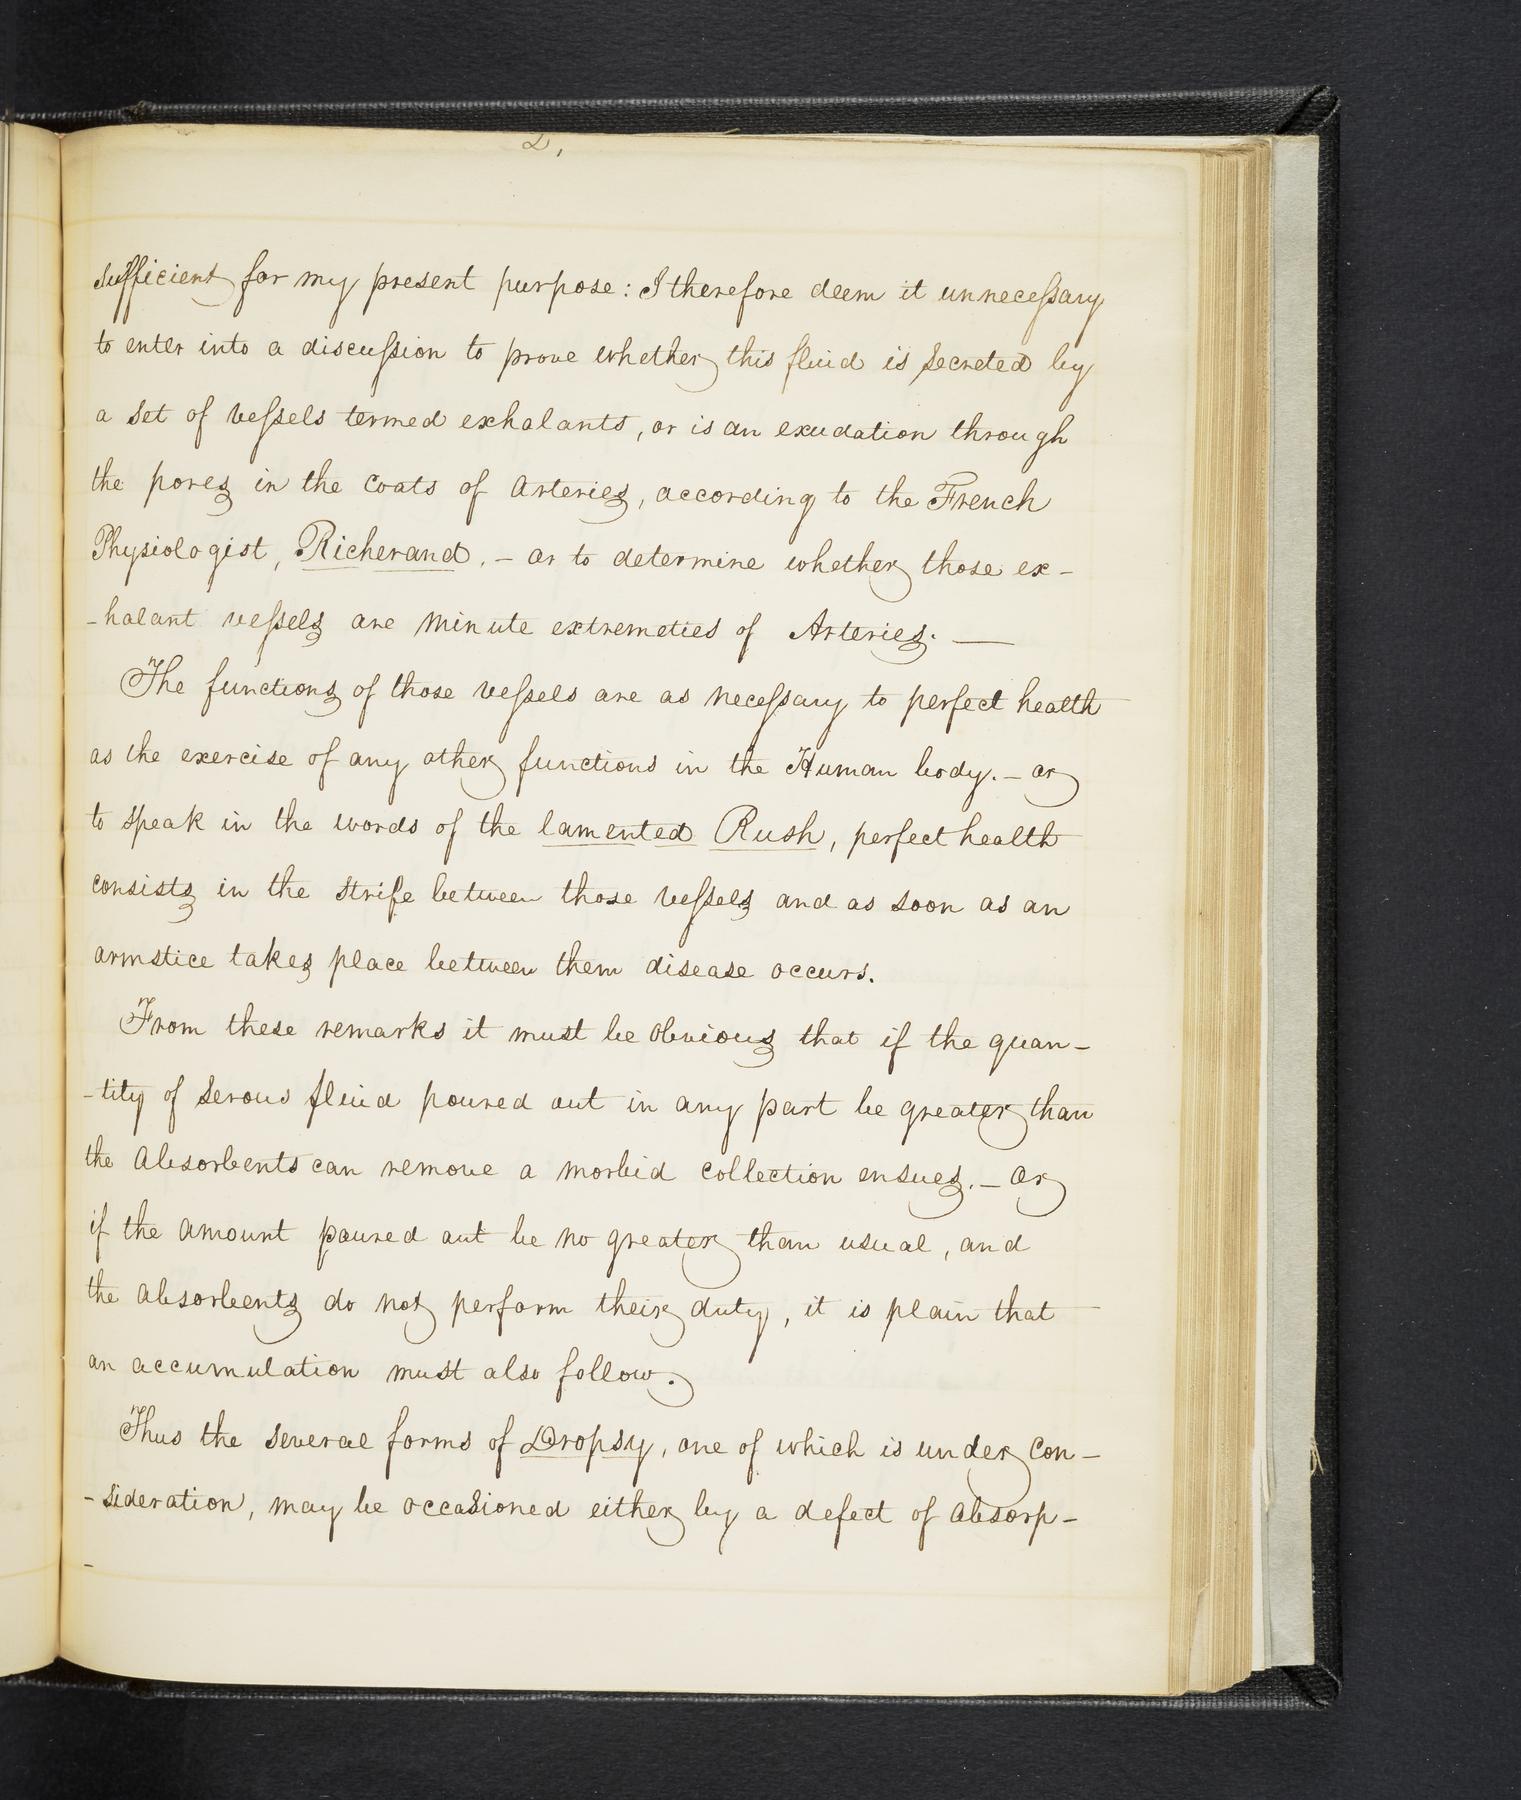 2,
sufficient for my present purpose: I therefore deem it unnecessary
to enter into a discussion to prove whether this fluid is secreted by
a set of vessels termed exhalants, or is an exudation through
the pores in the coats of arteries, according to the French
Physiologist, Richerand. - or to determine whether those ex-
-halant vessels are minute extremeties of Arteries. —
The functions of those vessels are as necessary to perfect health
as the exercise of any other functions in the Human body. - or
to speak in the words of the lamented Rush, perfect health
consists in the strife between those vessels and as soon as an
armstice takes place between them disease occurs.
From these remarks it must be obvious that if the quan-
-tity of serous fluid poured out in any part be greater than
the absorbents can remove a morbid collection ensues. - Or
if the amount poured out be no greater than usual, and
the absorbents do not perform their duty, it is plain that
an accumulation must also follow.
Thus the several forms of Dropsy, one of which is under con-
-sideration, may be occasioned either by a defect of absorp-
-